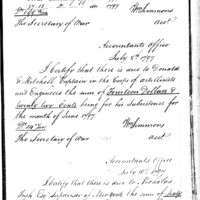 Wm Simmons
acct
The Secretary of War
Accountants Office
July 8th 1797
I Certify that there is due to Donald
G. Mitchell, Captain in the Corps of Artillerists
and Engineers the sum of Fourteen Dollars &
twenty two Cents being for his Subsistence for
the month of June 1797
Wm Simmons
acct
The Secretary of War
Accountants Office
July 10th 1797
I Certify that there is due to Nicholas
Fish Esq. Supervisor of New York the sum of